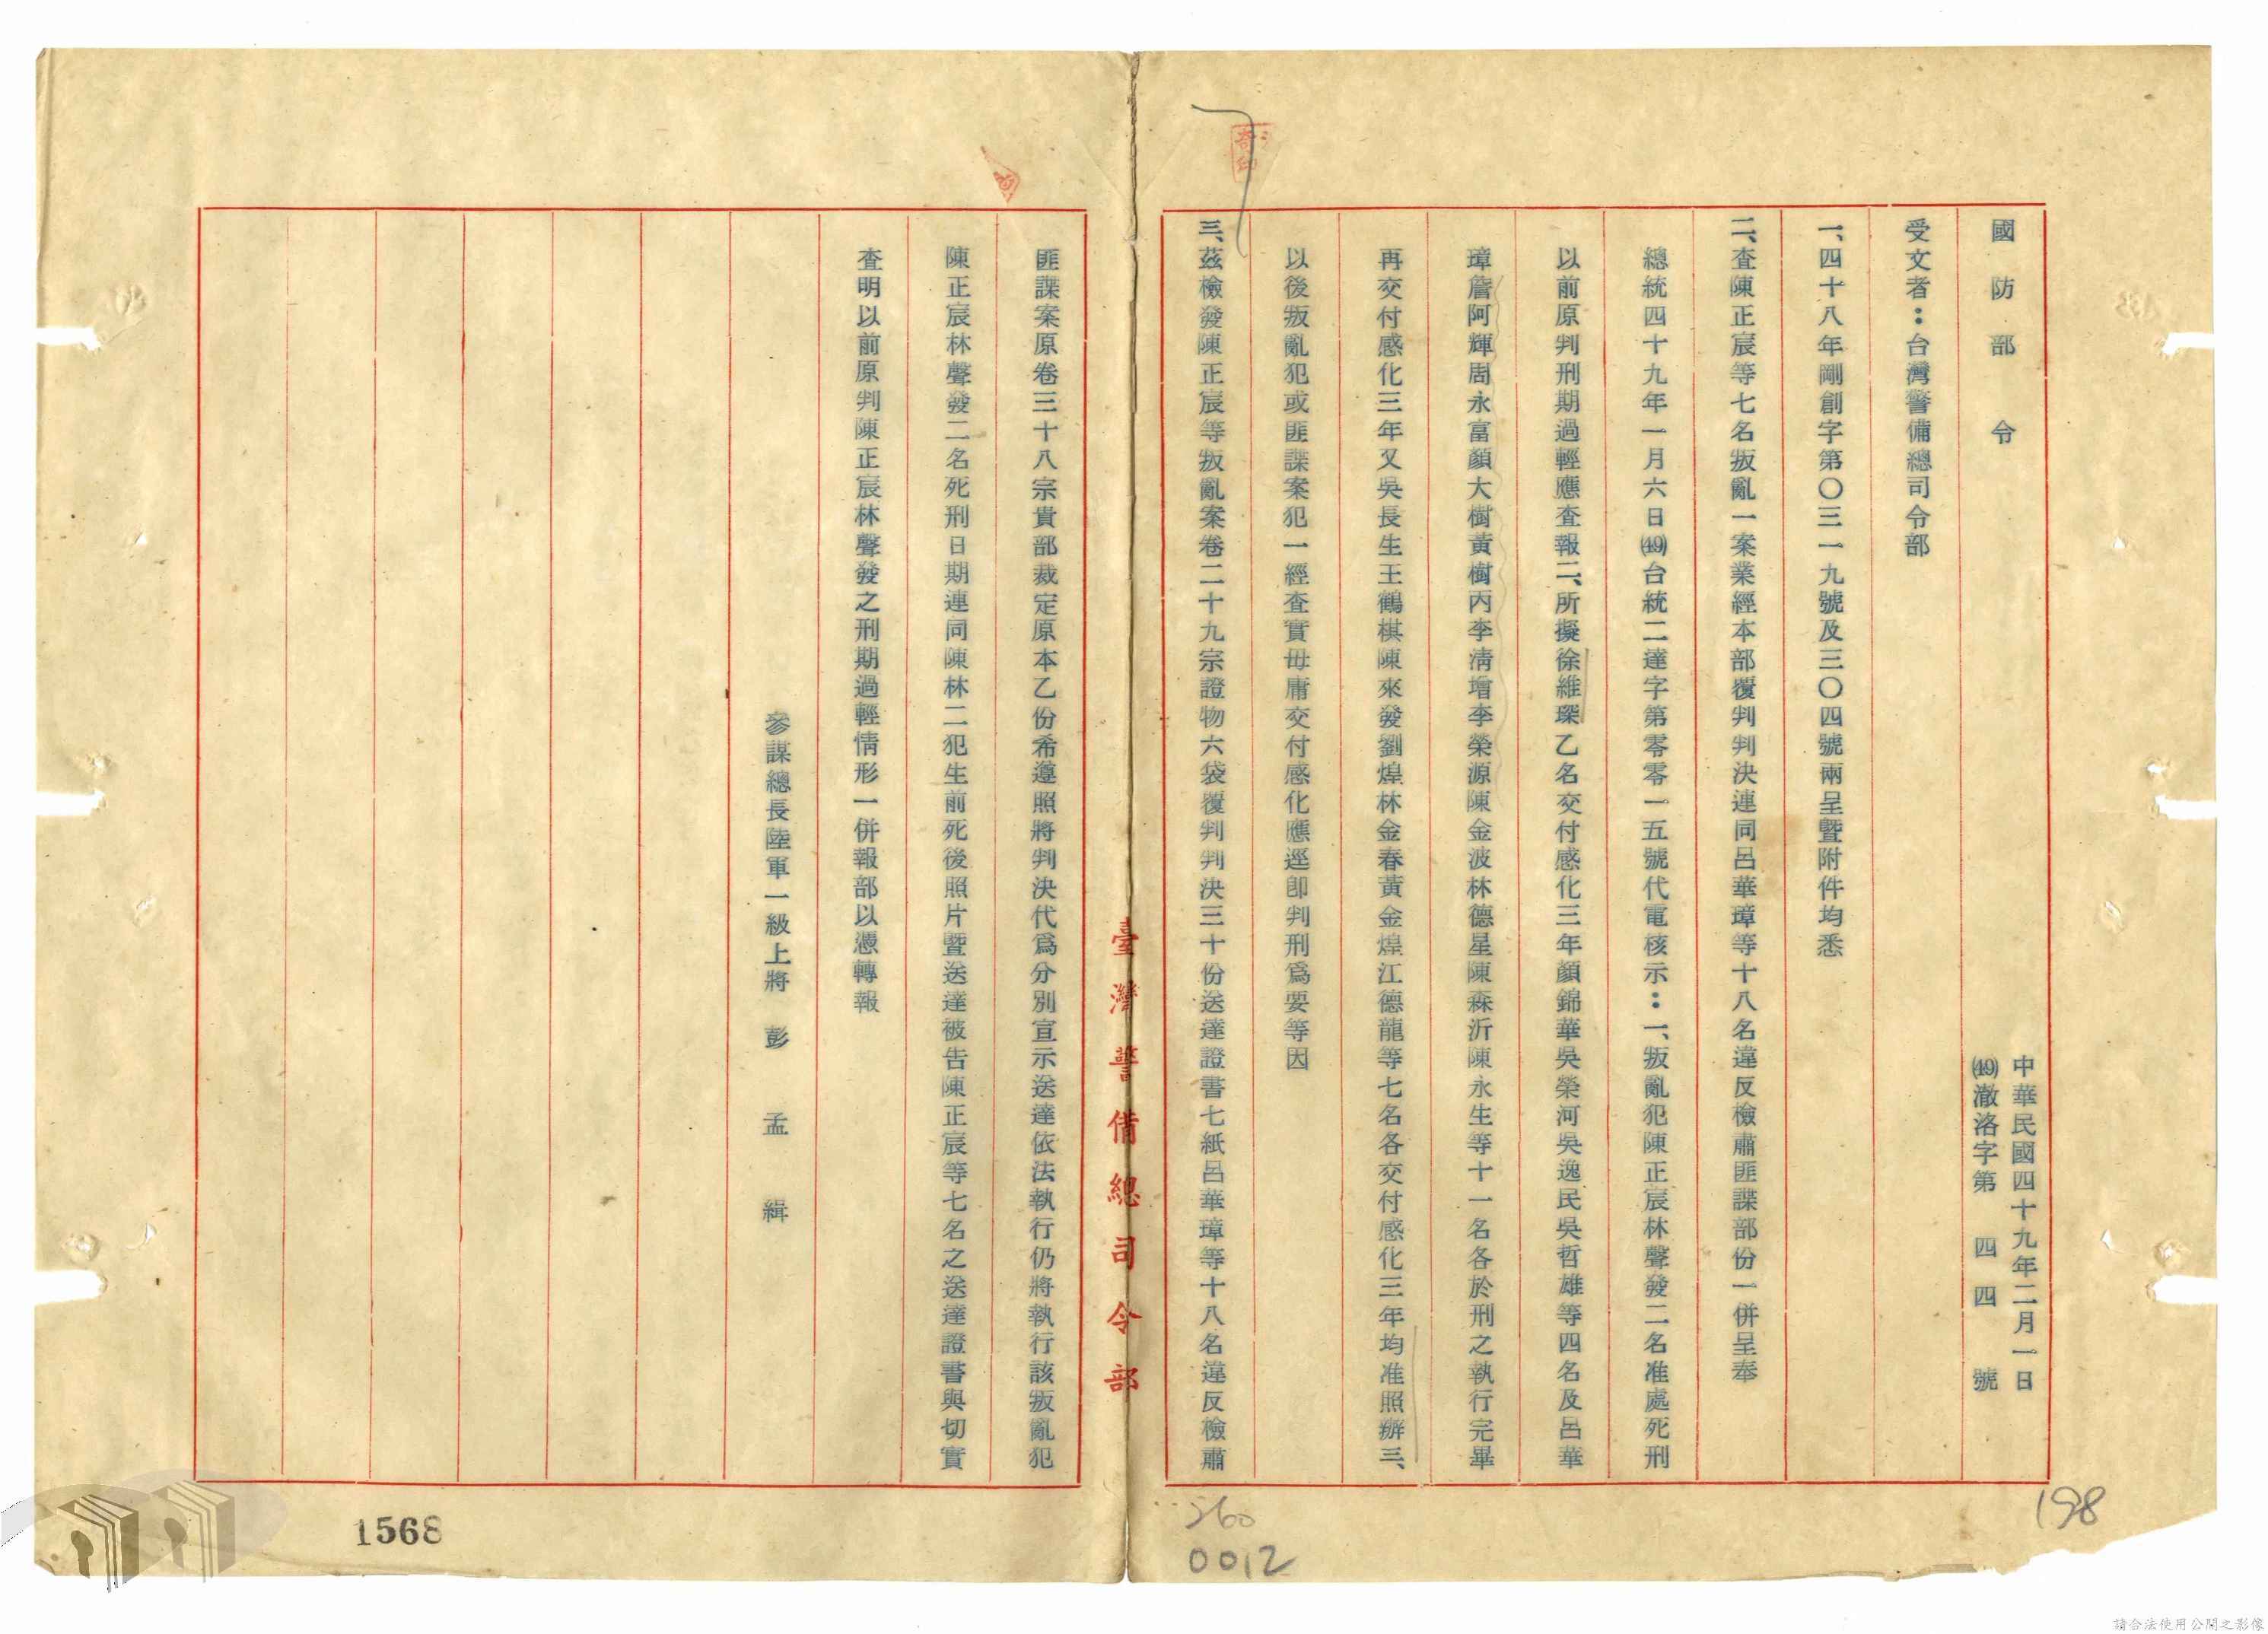 國防部令
中華民國四十九年二月一日
(49)澈洛字第四四號
受文者：台灣警備總司令部
一、四十八年剛創字第〇三一九號及三〇四號兩呈暨附件均悉
二、査陳正宸等七名叛亂一案業經本部覆判判決連同呂華璋等十八名違反檢肅匪諜部份一併呈奉
總統四十九年一月六日(49)台統二達字第零零一五號代電核示：一、叛亂犯陳正宸林聲發二名准處死刑
以前原判刑期過輕應査報二、所擬徐維琛乙名交付感化三年顏錦華吳榮河吳逸民吳哲雄等四名及呂華
璋詹阿輝周永富顏大樹黃樹丙李清增李榮源陳金波林德星陳森沂陳永生等十一名各於刑之執行完畢
再交付感化三年又吳長生王鶴棋陳來發劉煌林金春黃金煌江德龍等七名各交付感化三年均准照辦三、
以後叛亂犯或匪諜案犯一經査實毋庸交付感化應逕卽判刑爲要等因
三、茲檢發陳正宸等叛亂案卷二十九宗證物六袋覆判判決三十份送達證書七紙呂華璋等十八名違反檢肅
臺灣警備總司令部
匪諜案原卷三十八宗貴部裁定原本乙份希遵照將判決代爲分別宣示送達依法執行仍將執行該叛亂犯
陳正宸林聲發二名死刑日期連同陳林二犯生前死後照片暨送達被告陳正宸等七名之送達證書與切實
査明以前原判陳正宸林聲發之刑期過輕情形一併報部以憑轉報
參謀總長陸軍一級上將 彭孟緝
198
260
0012
1568
請合法使用公開之影像